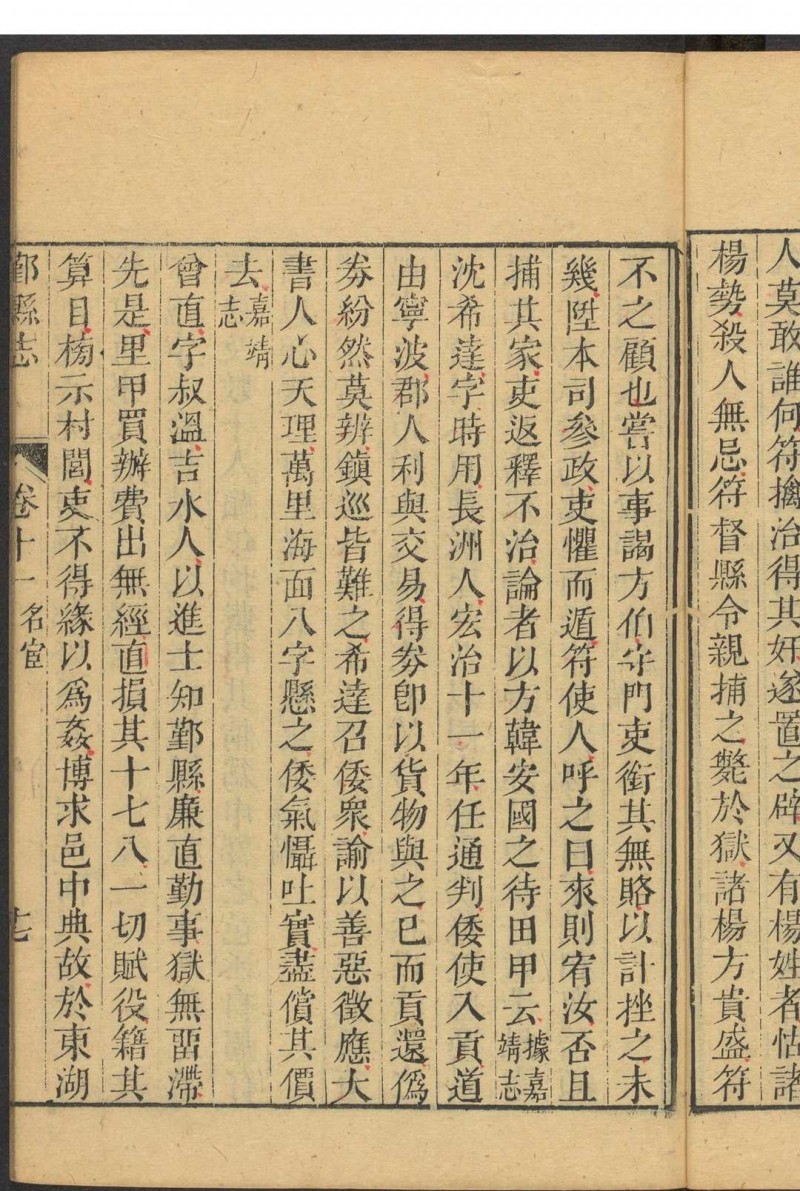 人莫敢誰何符擒治得其奸遂置之辟又有楊姓者怙諸
楊勢殺人無忌符督縣令親捕之斃於獄諸楊方貴盛符
不之顧也嘗以事謁方伯守門吏銜其無賂以計挫之未
幾陞本司參政吏懼而遁符使人呼之曰來則宥汝否且
捕其家吏返釋不治論者以方韓安國之待田甲云據嘉靖志
沈希達字時用長洲人宏治十一年任通判倭使入貢道
由寧波郡人利與交易得劵卽以貨物與之已而貢還僞
劵紛然莫辨鎮巡皆難之希達召倭衆諭以善惡徵應大
書人心天理萬里海面八字懸之倭氣懾吐實盡償其價
去嘉靖志
曾直字叔溫吉水人以進士知鄞縣廉直勤事獄無畱滯
先是里甲買辦費出無經直損其十七八一切賦役籍其
算目榜示村閭吏不得緣以爲姦博求邑中典故於東湖
鄞縣志 卷十一 名宦 十七